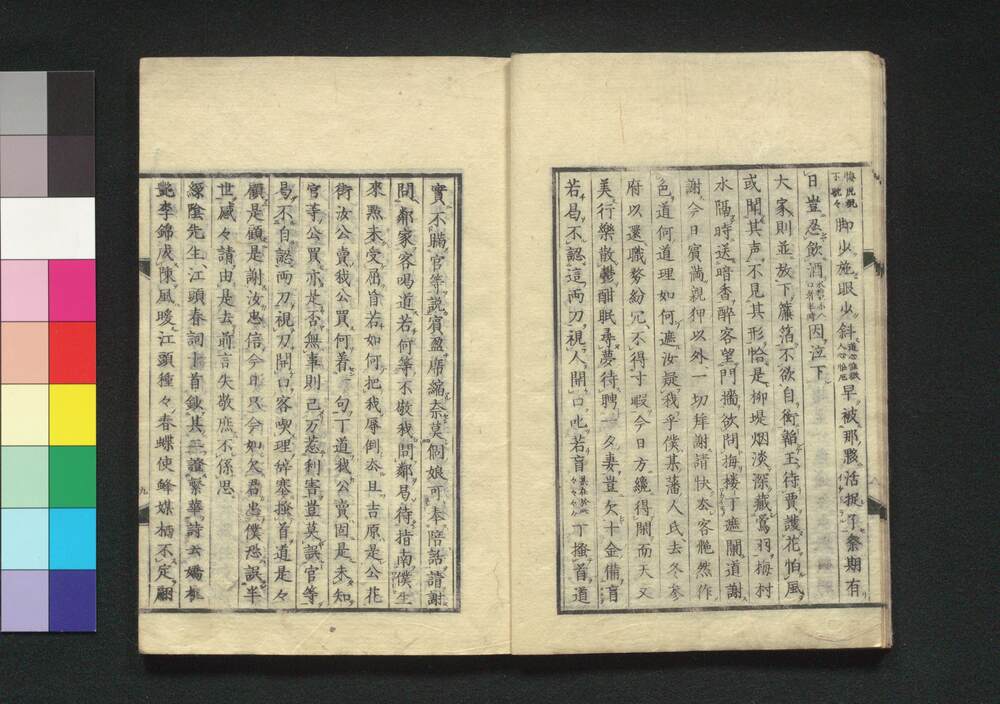 脚少施眼少斜早被那黟活捉了祭期有
日豈忍飲酒因泣下
大家則並放下簾箔不欲自衒韞玉待賈護花怕風
或聞其声不見其形恰是柳堤烟淡深藏鶯羽梅村
水隔時送暗香醉客望門攡欲問梅楼丁遮闌道謝
謝今日賓満親狎以外一切拝謝請快去客艴然作
色道何道理如何遮汝疑我乎僕某藩人氏去冬参
府以還職務紛冗不得寸暇今日方纔得閑而天又
美行樂散鬱酣眠尋夢待聘一夕妻豈欠十金備盲
若曷不認這両刀視人開口叱若盲丁搔首道
實不瞞官等説賓盈席縮奈莫個娘可奉陪話請謝
問鄰家客喝道若何等不敬我問鄰曷待指南僕生
來㸃未受屈旨若如何把我辱倒去且吉原是公花
街汝公賣我公買何着一句丁道我公賣固是未知
官等公買亦是否無事則已万惹利害豈莫誤官等
曷不自認両刀視刀開口客喫理辞塞搔首道是々
領是領是謝汝忠信今而
世感々請由是去前言失敬庶不係思
緑陰先生江頭春詞十首録其三證繁華詩云嬌桃
艶李錦成陳風暖江頭種々春蝶使蜂媒栖不定翩
九